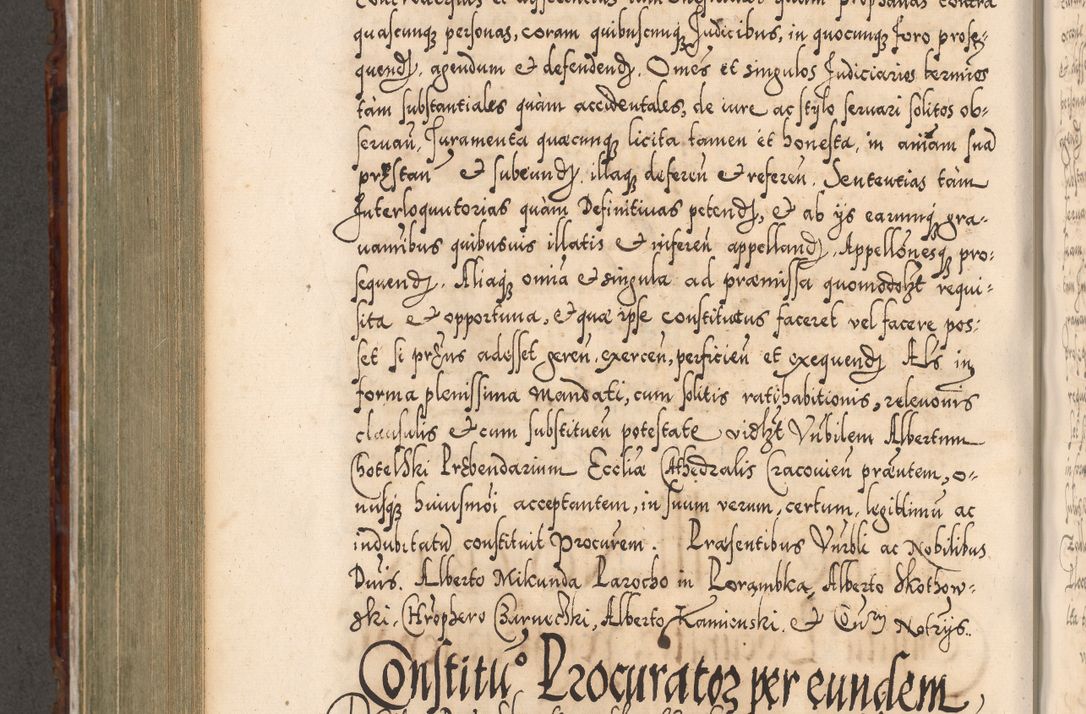 quascunq personas, coram quibuscunq Judicibus, in quocunq foro prose-
quend, agendum et defendend. Omes et singulos Judiciarios termios
tam substantiales quam accidentales, de iure ac stylo servari solitos ob-
servan, Juramenta quæcunq licita tamen et honesta, in aniam sua
præstan et subeund, illaq deferen et referen. Sententias tam
Interloquutorias quam Definitivas petend, et ab ijs earumq gra-
vaminibus quibusvis illatis et inferen appelland, Appellonesq pro-
sequend. Aliaq omia et singula ad præmissa quomodolbt requi-
sita et opportuna, et quæ ipse constitutus faceret vel facere pos-
set si præns adesset geren, exercen, perficien et exequend Als in
forma plenissima Mandati, cum solitis ratihabitionis, relevonis
clausulis et cum substituen potestate vidlzt Vnbilem Albertum
Chotelski Præbendarium Eccliæ Cathedralis Cracovien præntem, o-
nusq huiusmoi acceptantem, in suum verum, certum, legitimu ac
indubitatu constituit Procurem. Præsentibus Vnrbli ac Nobilibus
Dnis. Alberto Mikunda Parocho in Porambka, Alberto Skothow-
ski, Chrophero Czarnechki, Alberto Kamienski et Notrijs.
Constitu° Procurator per eundem